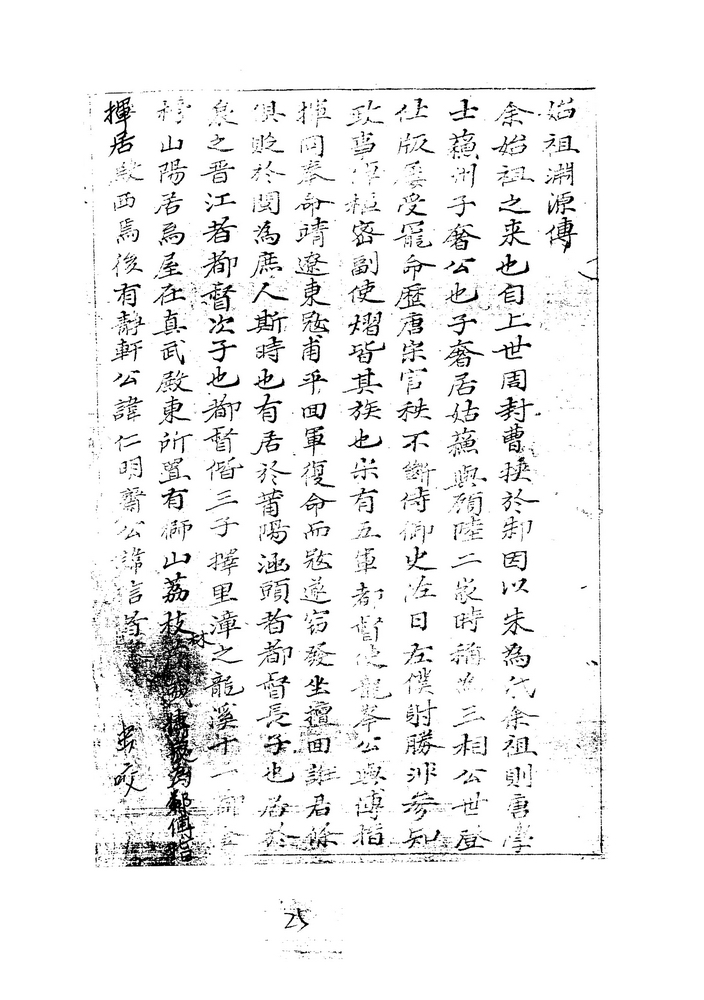 始祖淵源傳
余始祖之来也自上世周封曹挾於邾因以朱為氏余祖則唐學
士蘓州子奢公也子奢居姑蘓與顧陸二家時稱為三相公世登
仕版屢受寵命歷唐宋官秩不斷侍御史泩曰左僕射勝非參知
政事倬樞密副使熠皆其族也宋有五軍都督使龍峯公與傅指
揮同奉命靖遼東冦甫平回軍復命而冦遂窃發坐擅回誑君除
俱貶於閩為庶人斯時也有居於莆陽涵頭者都督長子也居於
泉之晋江者都督次子也都督偕三子擇里漳之龍溪十一
山陽居焉屋在真武殿東所置有獅山荔枝林
揮居殿西焉後有靜軒公諱仁明齋公諱言者
25